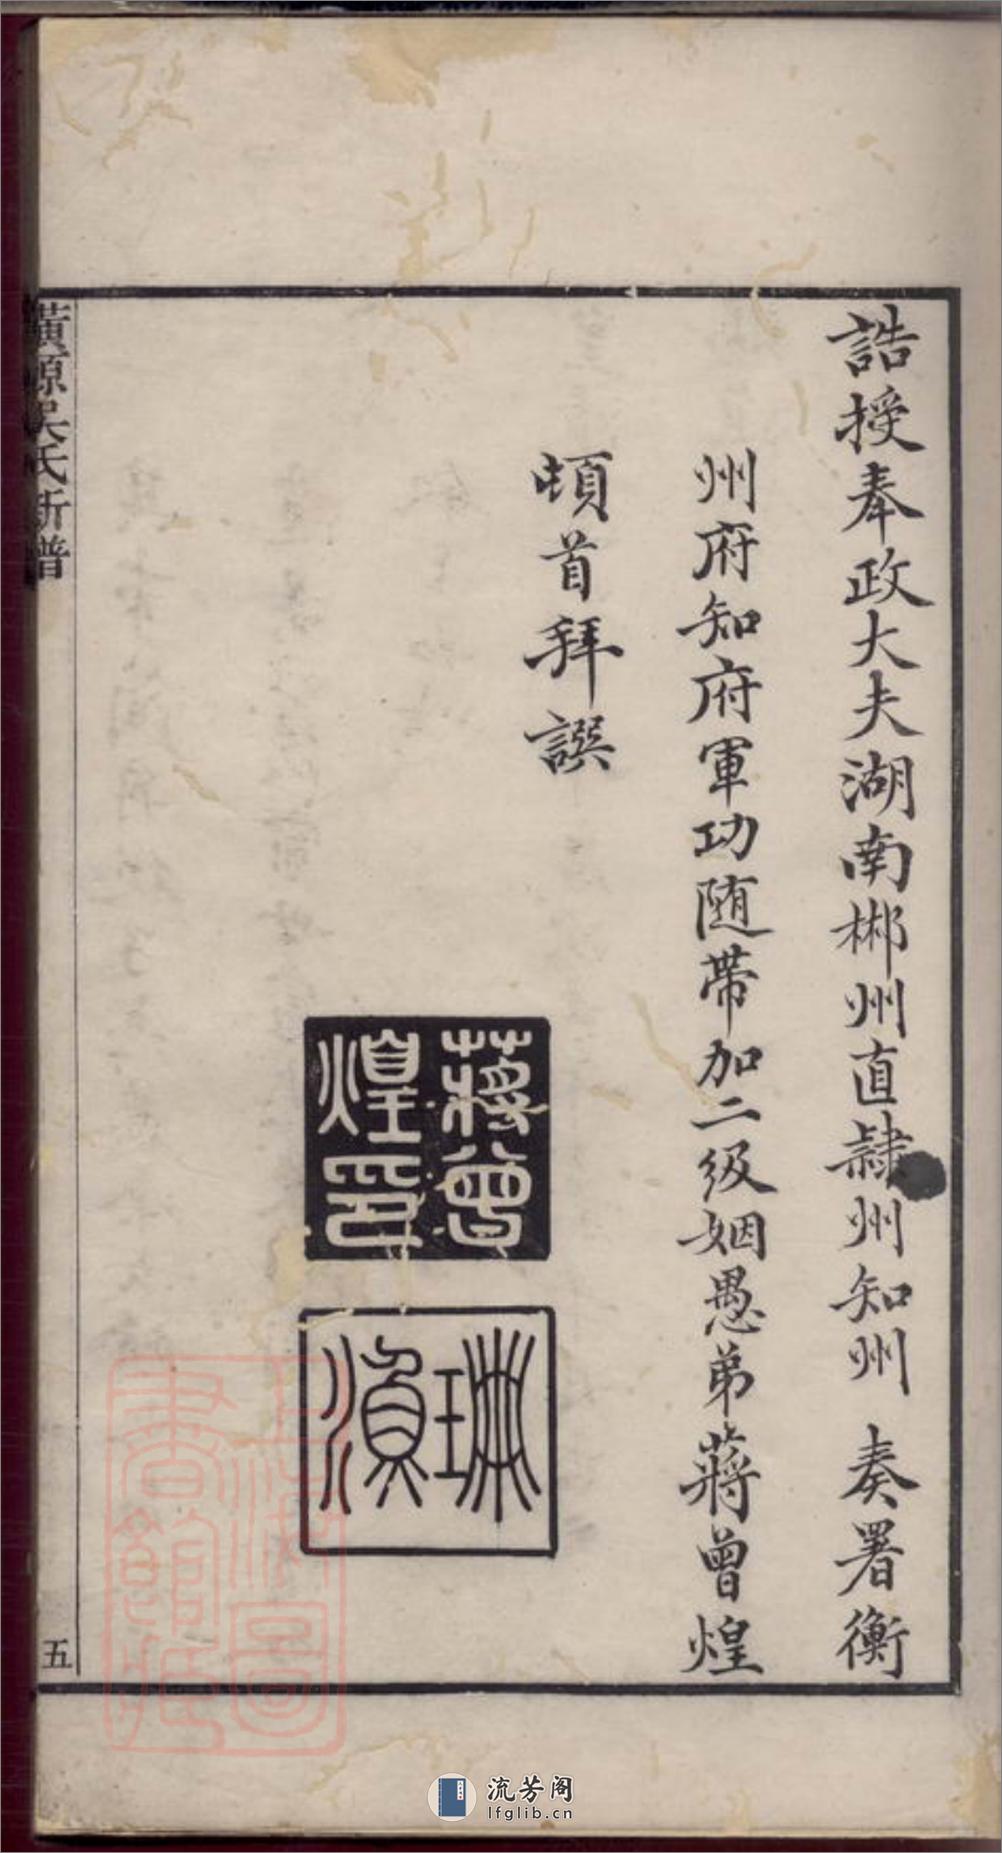 誥授奉政大夫湖南郴州直隸州知州 奏署衡
州府知府軍功随帶加二級姻愚弟蔣曾煌
頓首拜譔
蔣曾
煌印
琳
濵
黃源吳氏新譜
五
上海圖
書館藏
流芳阁
lfglib.cn